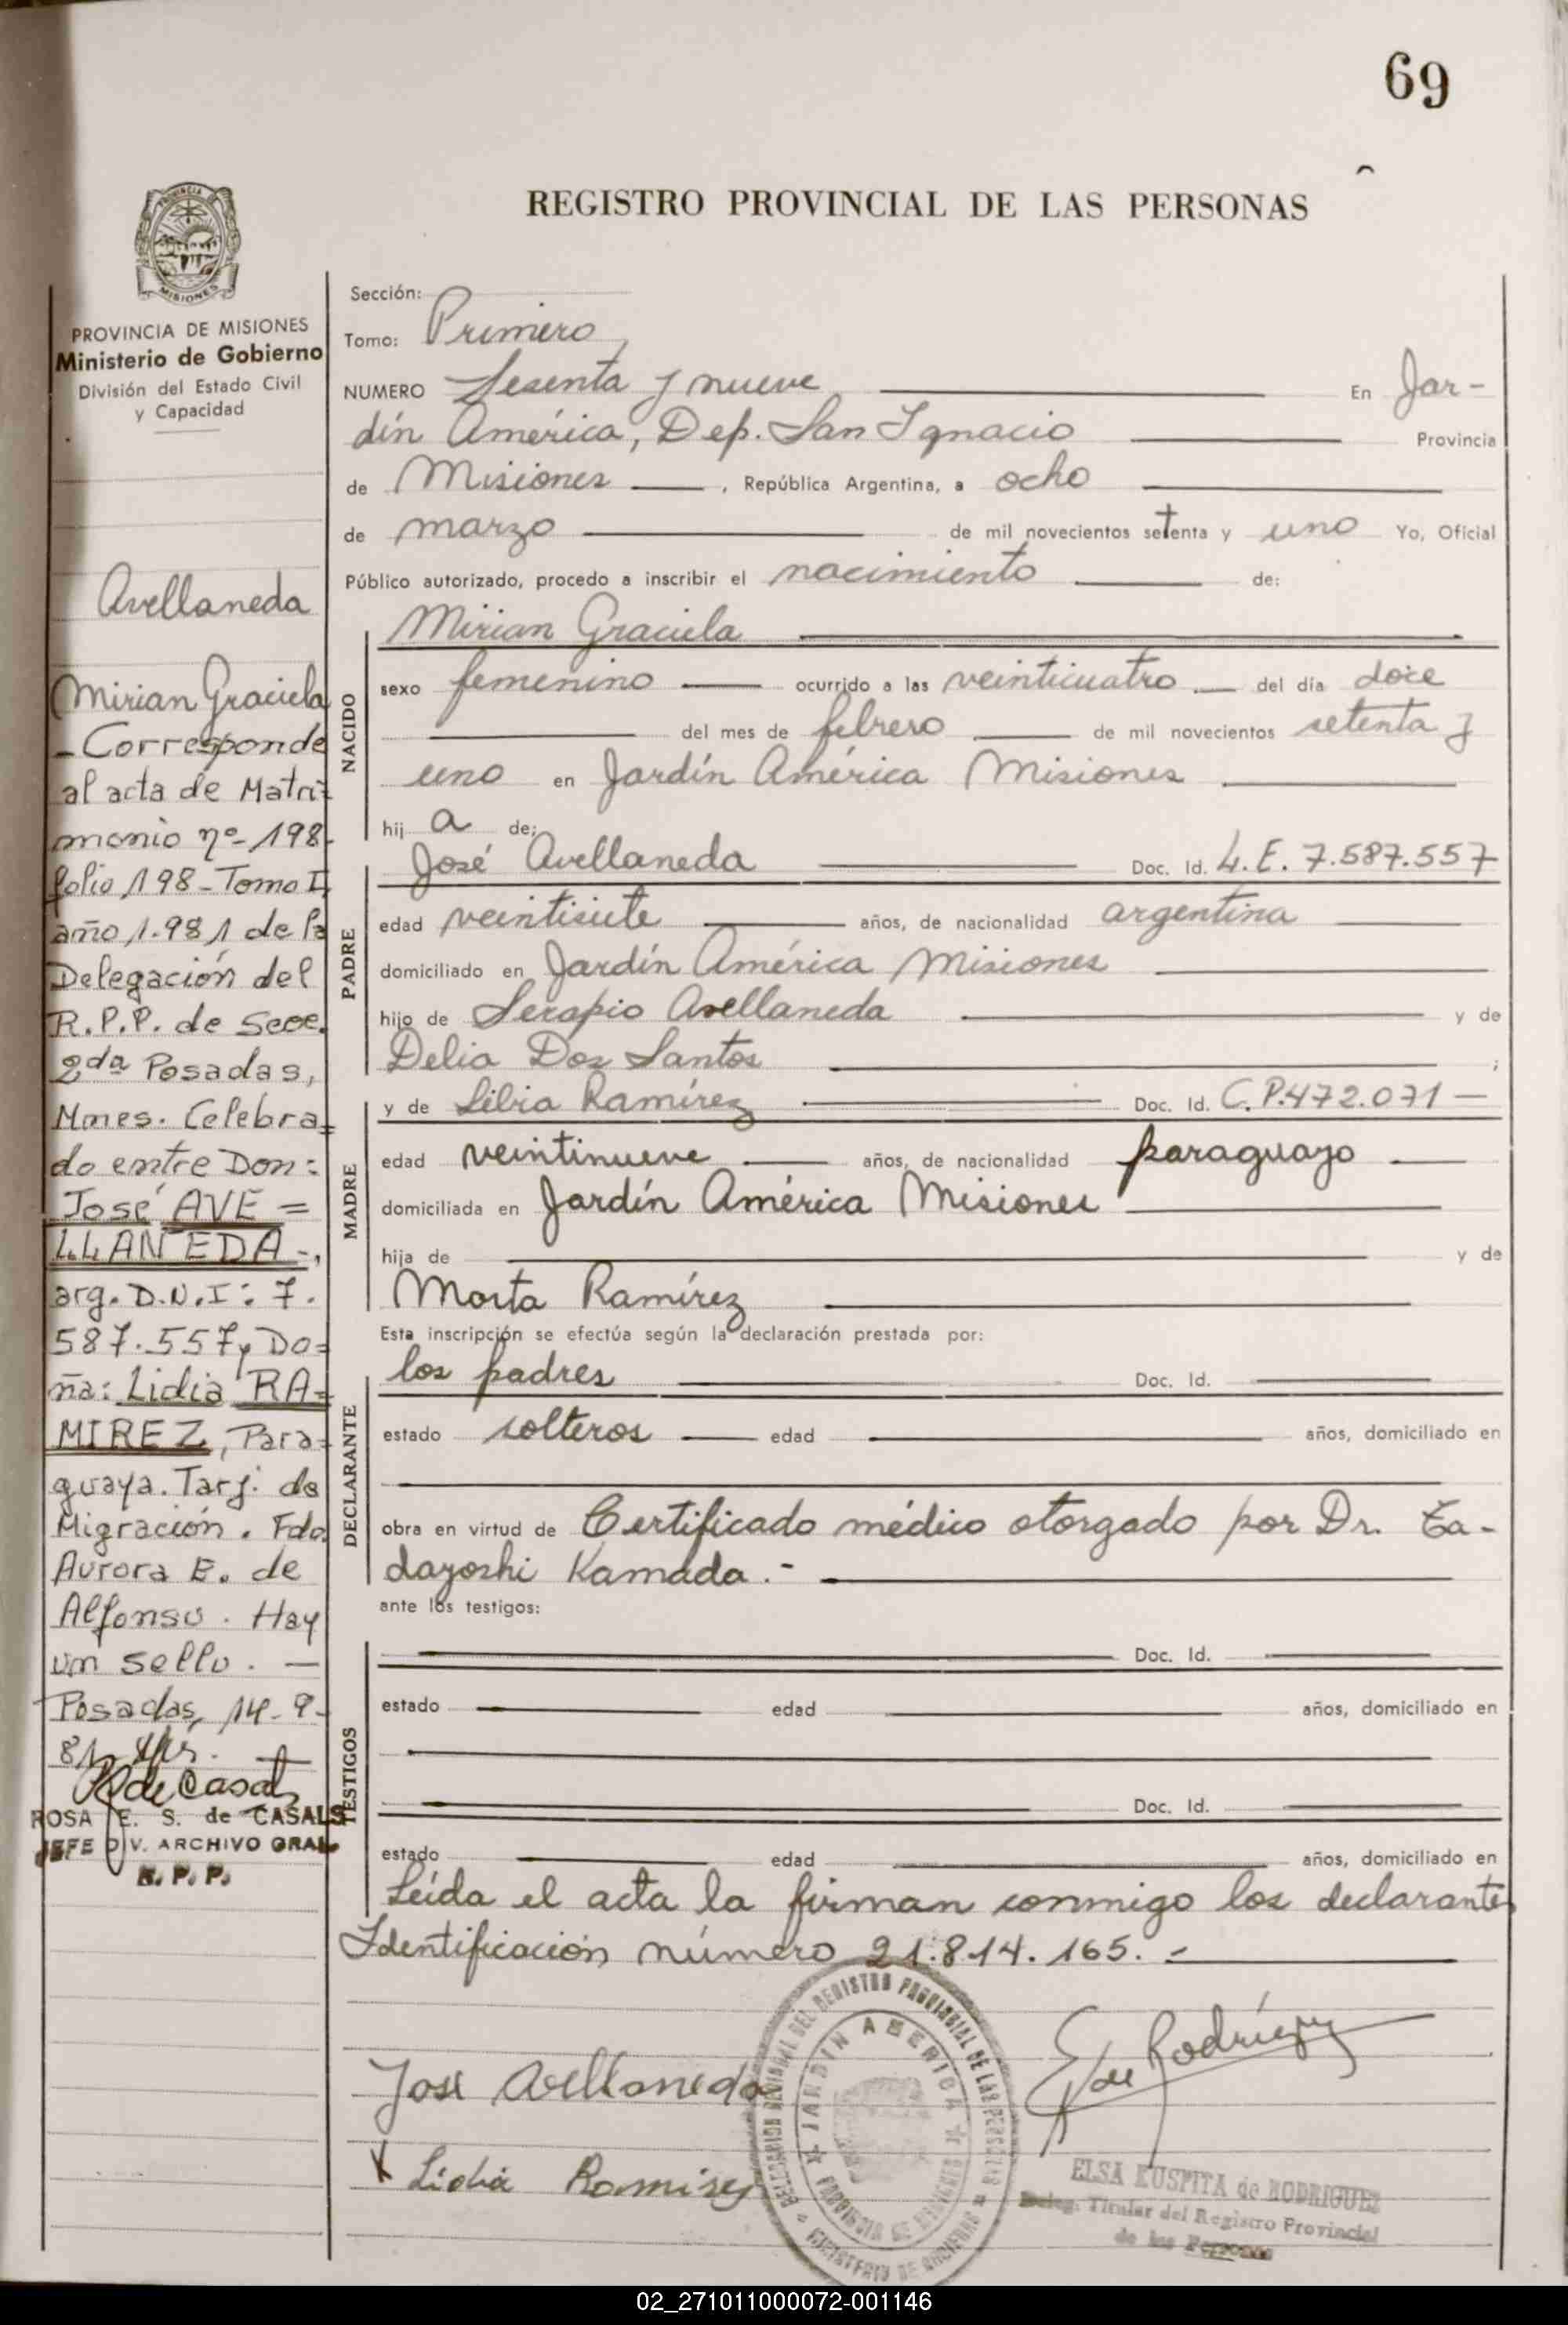 69
REGISTRO PROVINCIAL DE LAS PERSONAS
PROVINCIA
MISIONES
PROVINCIA DE MISIONES
Ministerio de Gobierno
División del Estado Civil
y Capacidad
Avellaneda
Mirian Graciela
- Corresponde
al acta de Matri=
monio nº 198-
folio 198 - Tomo I,
año 1.981 de la
Delegación del
R.P.P. de Secc.
2da Posadas,
Mnes. Celebra=
do entre Don:
José AVE =
LLANEDA -,
arg. D.N.I: 7.
587.557 y Do=
ña: Lidia RA=
MIREZ, Para=
guaya. Tarj. de
Migración. Fdo.
Aurora E. de
Alfonso. Hay
un sello. —
Posadas, 14-9-
81
R de Casals
ROSA E. S. de CASALS
JEFE DIV. ARCHIVO GRAL
R. P. P.
Sección:
Tomo: Primero
NUMERO Sesenta y nueve En Jar-
dín América, Dep. San Ignacio Provincia
de Misiones , República Argentina, a ocho
de marzo de mil novecientos setenta y uno Yo, Oficial
Público autorizado, procedo a inscribir el nacimiento de:
NACIDO
Mirian Graciela
sexo femenino ocurrido a las veinticuatro del día doce
del mes de febrero de mil novecientos setenta y
uno en Jardín América Misiones
hij a de:
PADRE
José Avellaneda Doc. Id. L.E. 7.587.557
edad veintisiete años, de nacionalidad argentina
domiciliado en Jardín América Misiones
hijo de Serapio Avellaneda y de
Delia Dos Santos ;
MADRE
y de Libia Ramírez Doc. Id. C.P.472.071 —
edad veintinueve años, de nacionalidad paraguayo
domiciliada en Jardín América Misiones
hija de y de
Marta Ramírez
Esta inscripción se efectúa según la declaración prestada por:
DECLARANTE
los padres Doc. Id.
estado solteros edad años, domiciliado en
obra en virtud de Certificado médico otorgado por Dr. Ta-
dayoshi Kamada.-
ante los testigos:
TESTIGOS
Doc. Id.
estado edad años, domiciliado en
Doc. Id.
estado edad años, domiciliado en
Leída el acta la firman conmigo los declarantes
Identificación número 21.814.165.-
Jose Avellaneda
x Lidia Ramirez
DELEGACION SECCIONAL DEL REGISTRO PROVINCIAL DE LAS PERSONAS
JARDIN AMERICA
PROVINCIA DE MISIONES
E de Rodríguez
ELSA KUSPITA de RODRIGUEZ
Deleg. Titular del Registro Provincial
de las Personas
02_271011000072-001146